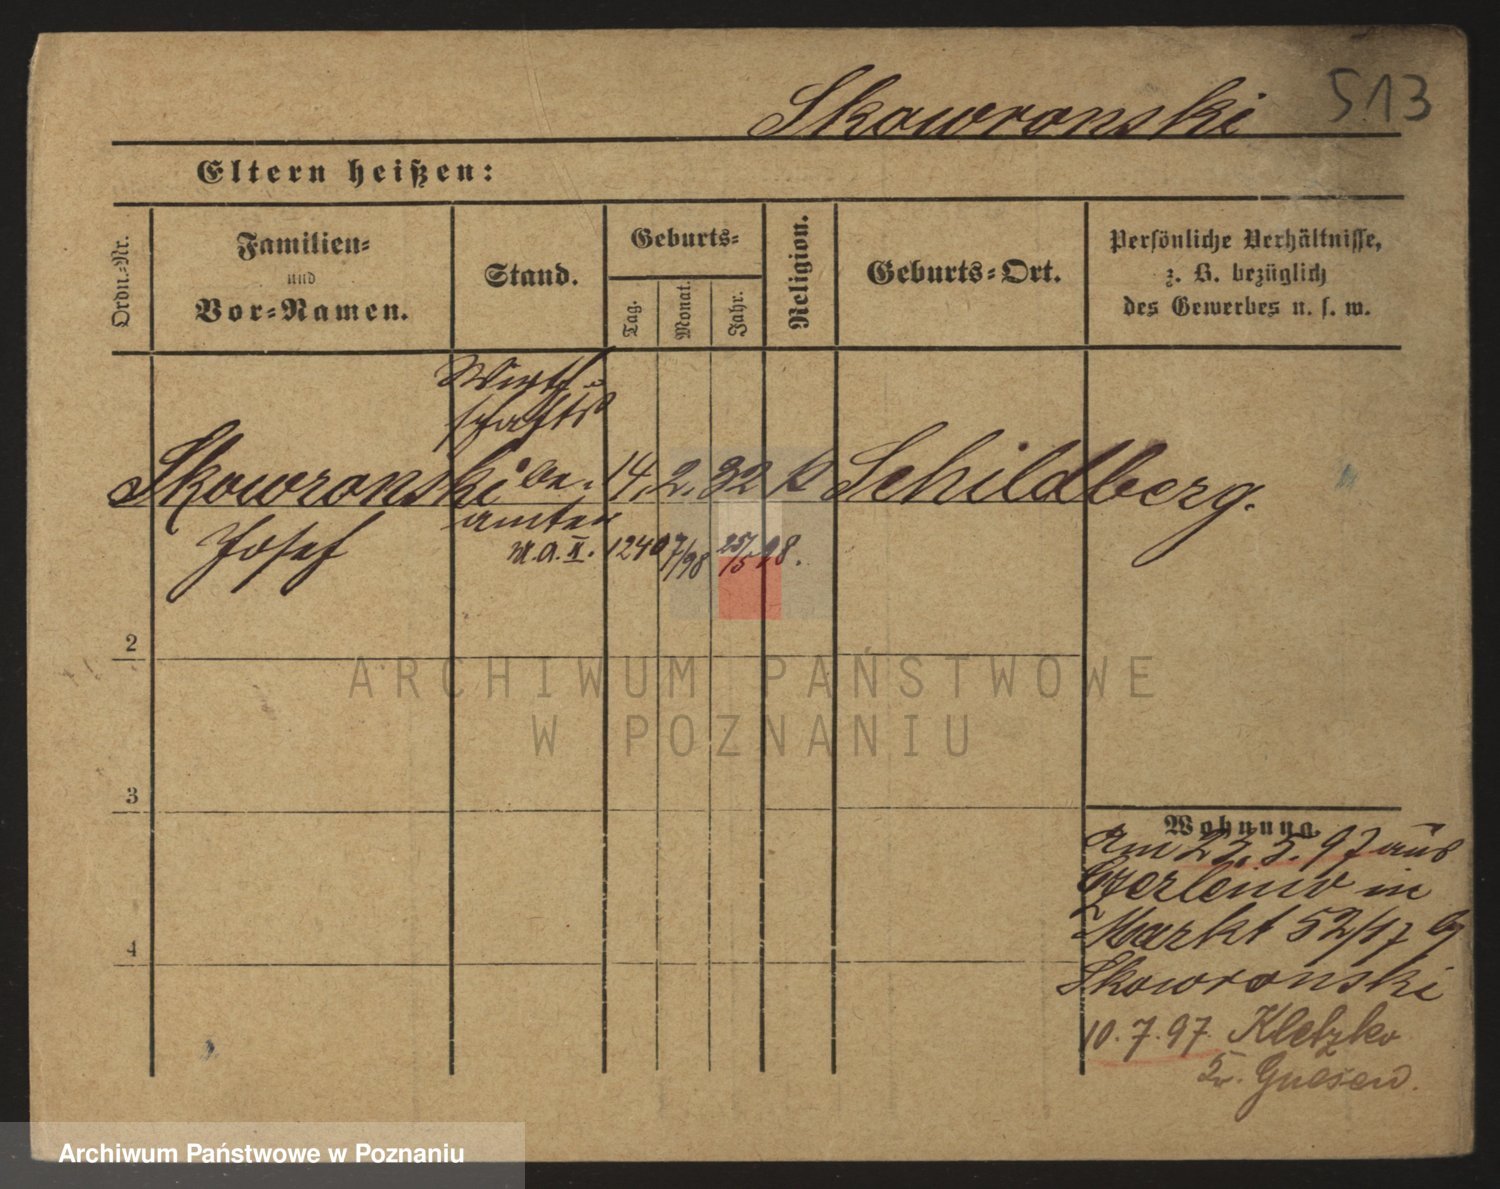 Skowronski 513
Eltern heißen:
Ordn.-Nr.
Familien-
und
Vor-Namen.
Stand.
Geburts-
Tag.
Monat.
Jahr.
Religion.
Geburts-Ort.
Persönliche Verhältnisse,
z. B. bezüglich
des Gewerbes u. s. w.
Wirth-
schafts
Skowronski be- 14. 2. 32 k Schildberg.
amter
Josef
M.A. II. 1240 7/98 25/5 98.
2
ARCHIWUM PAŃSTWOWE
W POZNANIU
3
Wohnung.
Am 23.5.97 aus
in
Markt 52/17 bei
Skowronski
4
10.7.97 Kletzko
Kr. Gnesen.
Archiwum Państwowe w Poznaniu